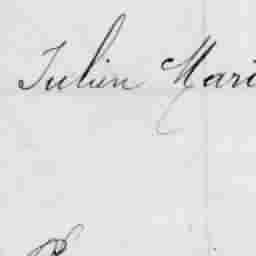 Julien Mari